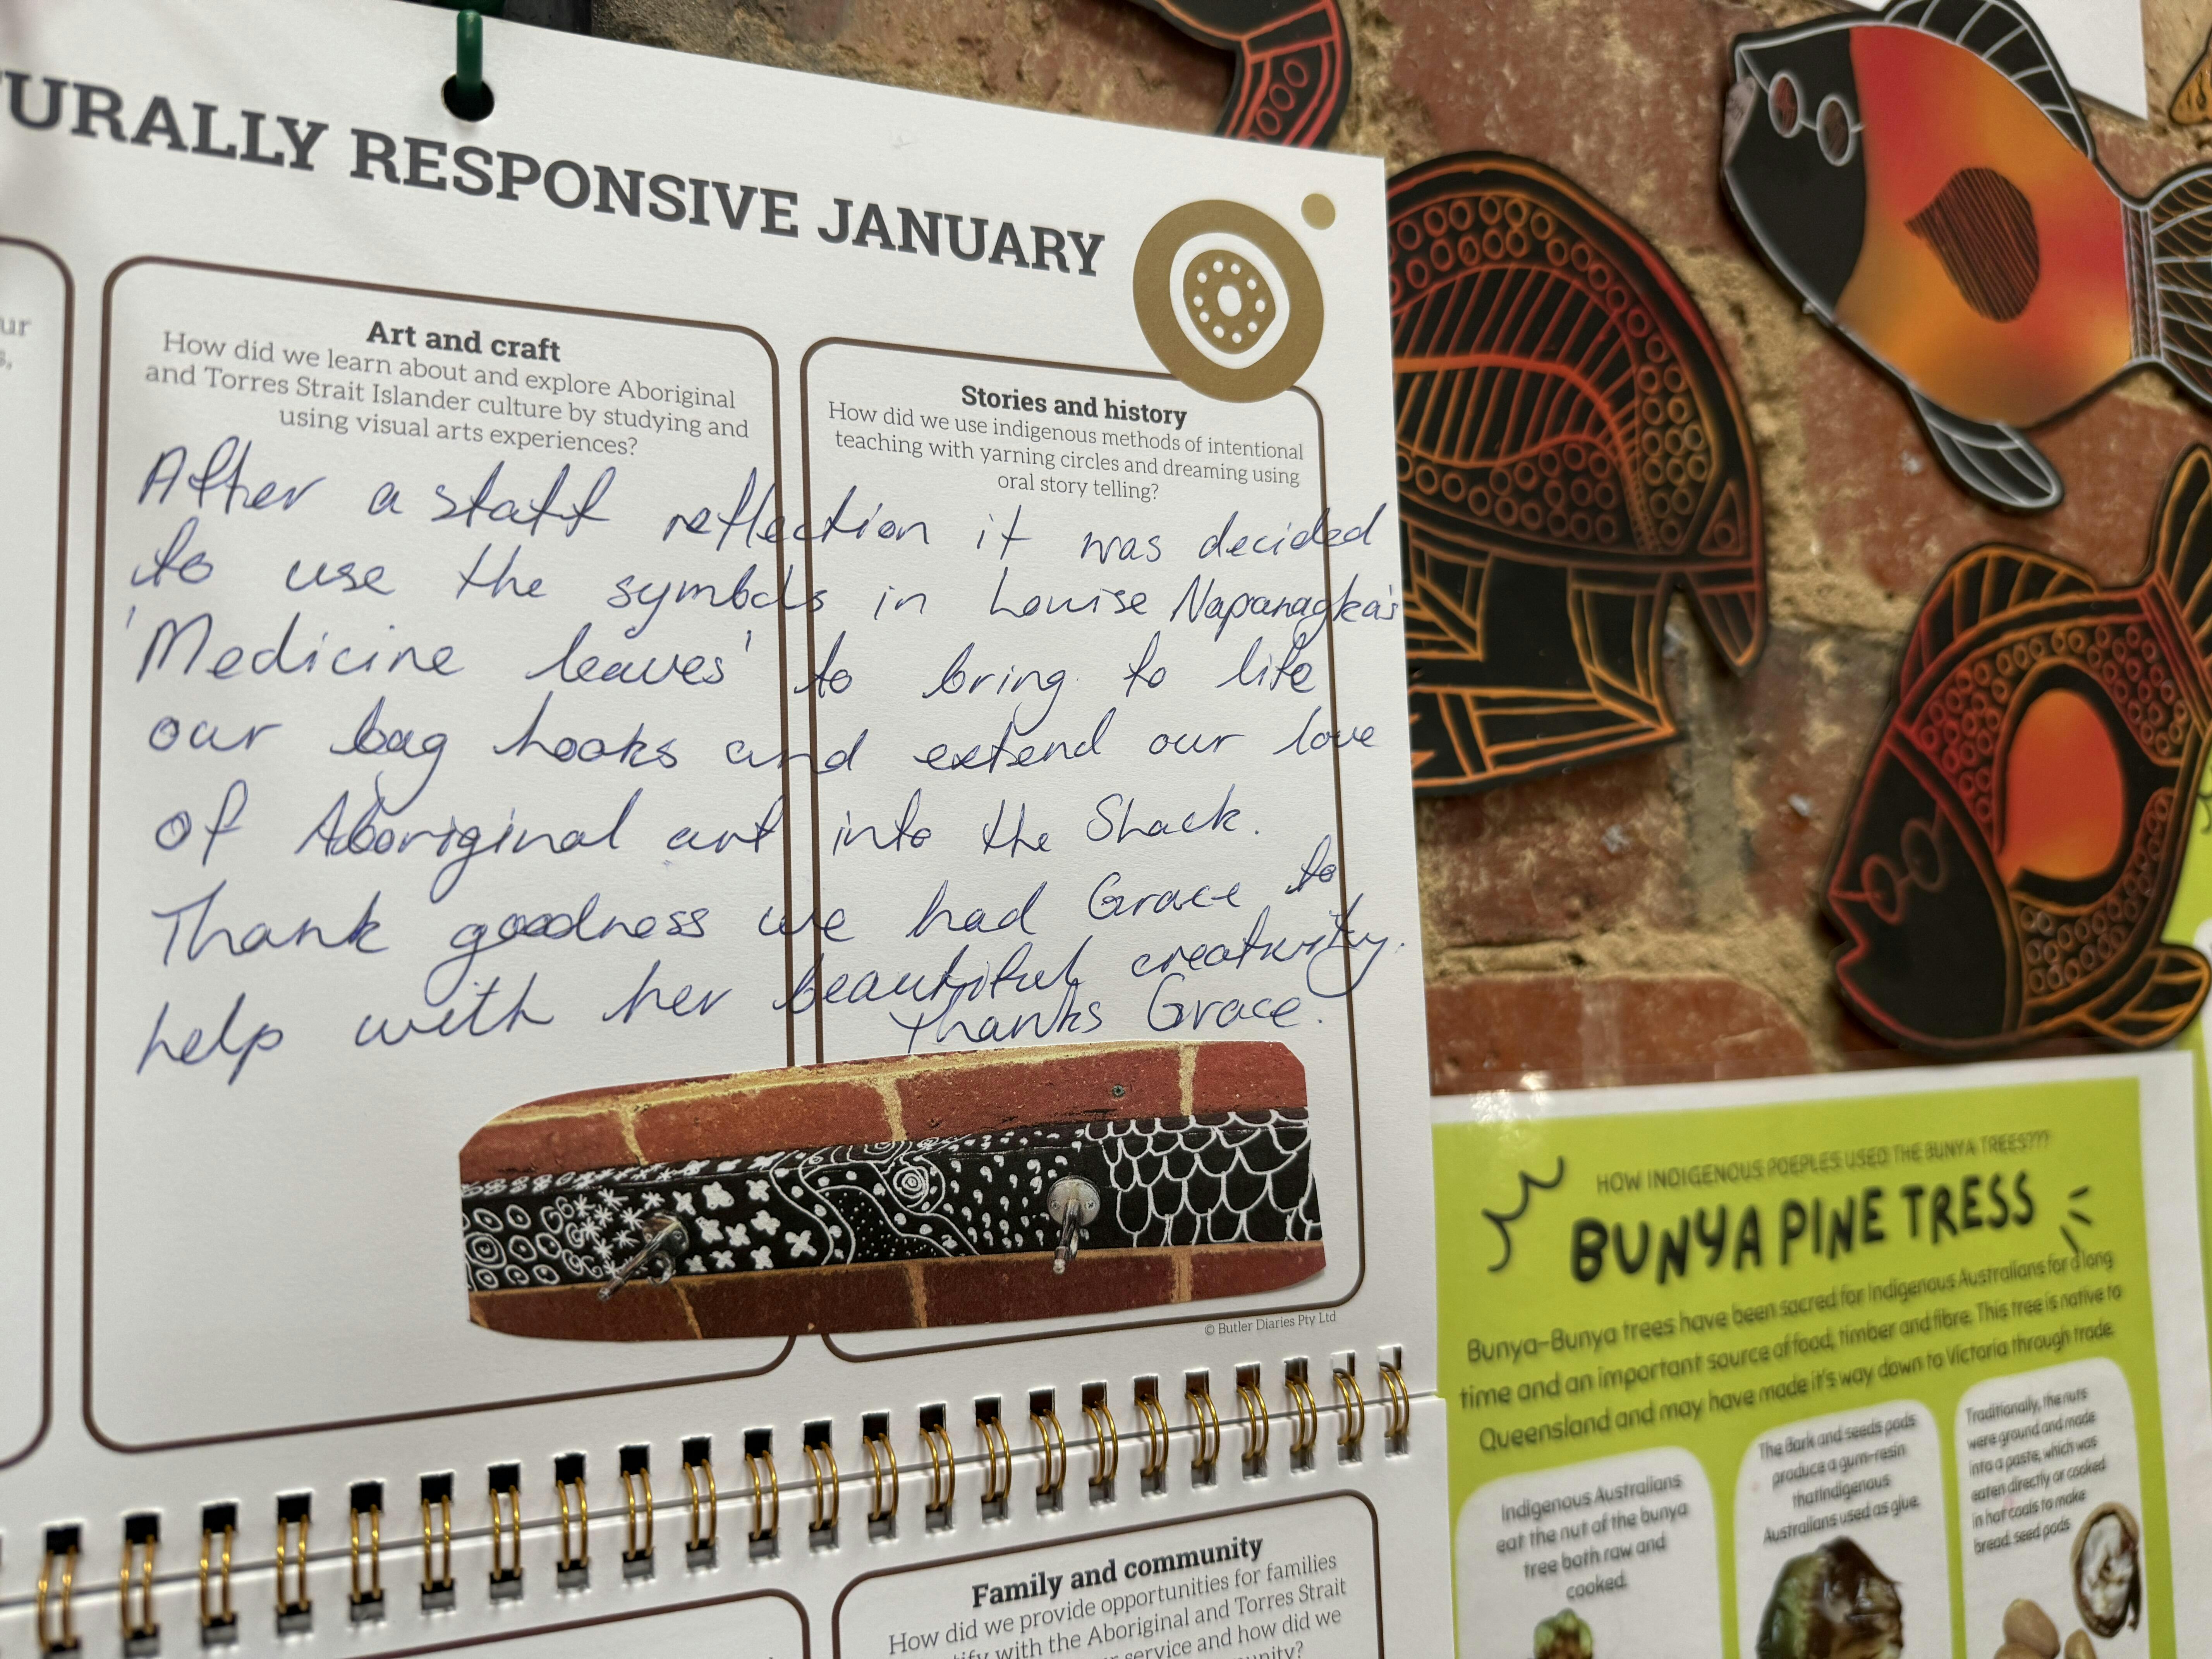 URALLY RESPONSIVE JANUARY
ur
s,
Art and craft
How did we learn about and explore Aboriginal
and Torres Strait Islander culture by studying and
using visual arts experiences?
Stories and history
How did we use indigenous methods of intentional
teaching with yarning circles and dreaming using
oral story telling?
After a staff reflection it was decided
to use the symbols in Louise Napanagka's
'Medicine leaves' to bring to life
our bag hooks and extend our love
of Aboriginal art into the Shack.
Thank goodness we had Grace to
help with her beautiful creativity.
Thanks Grace.
© Butler Diaries Pty Ltd
Family and community
How did we provide opportunities for families
tify with the Aboriginal and Torres Strait
r service and how did we
unity?
HOW INDIGENOUS POEPLES USED THE BUNYA TREES???
BUNYA PINE TRESS
Bunya-Bunya trees have been sacred for Indigenous Australians for a long
time and an important source of food, timber and fibre. This tree is native to
Queensland and may have made it's way down to Victoria through trade.
Indigenous Australians
eat the nut of the bunya
tree both raw and
cooked.
The Bark and seeds pods
produce a gum-resin
thatIndigenous
Australians used as glue.
Traditionally, the nuts
were ground and made
into a paste, which was
eaten directly or cooked
in hot coals to make
bread. seed pods